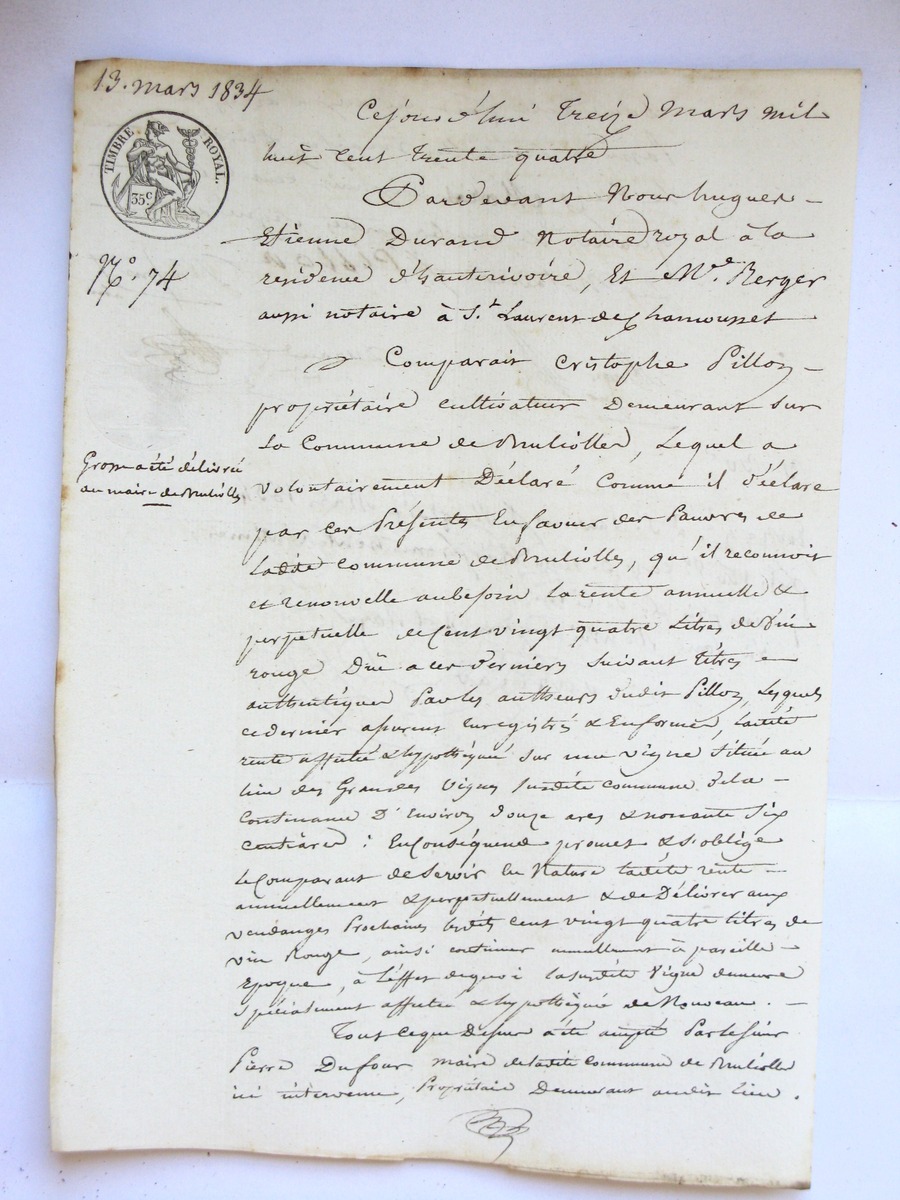 13. mars 1834
TIMBRE ROYAL.
35c
No. 74
Grosse a été délivré
au maire de Brulioles
Cejourd'hui Treize Mars mil
huit cent trente quatre
Pardevant Nous hugues
Etienne Durand Notaire royal à la
residence d'hauterivoire, Et Me. Berger
aussi notaire à St. Laurent de Chamousset
Comparait Cristophe Pilloz
propriétaire cultivateur Demeurant sur
la Commune de Bruliolles, Lequel a
volontairement Déclaré comme il déclare
par ces Présentes En faveur des Pauvres de
Ladite commune de Brulioles, qu'il reconnoit
et renouvelle aubesoin la rente annuelle &
perpetuelle de Cent vingt quatre Litres de Vin
rouge Dûe a ces derniers suivant titres
authentiques Par les autheurs dudit Pilloz, Lesquels
ce dernier aparent Enregistrés & En forme, Ladite
rente affectée & hypothéquée sur une vigne située au
lieu des Grandes Vignes susdite commune de la
Contenance D'Environ douze ares & nonante six
centiares : En Conséquence promet & s'oblige
le Comparant de servir En Nature ladite rente
annuellement & perpetuellement & de Délivrer aux
vendanges Prochaines lesdits cent vingt quatre litres de
vin Rouge, ainsi continuer annuellement à pareille
Epoque, à l'éffet de quoi la susdite Vigne demeure
spécialement affectée & hypothéquée de Nouveau.
Tout ceque Dessus a été accepté Par le sieur
Pierre Dufour maire de ladite commune de Brulioles
ici intervenu, Propriétaire Demeurant audit Lieu.